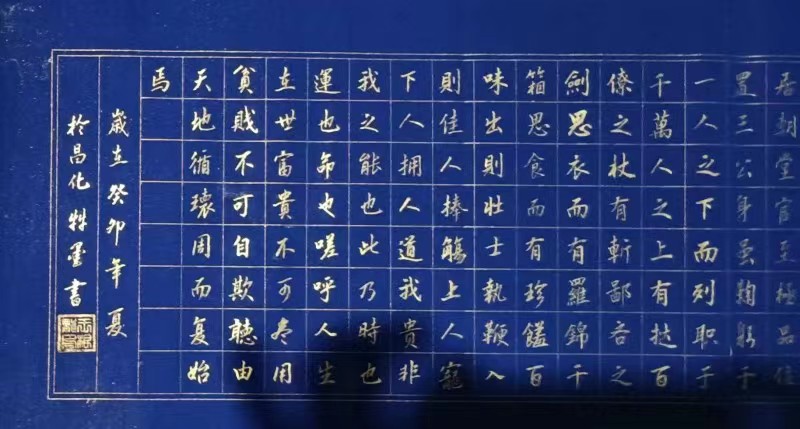 居朝堂官至極品位
置三公身虽鞠躬于
一人之下而列职于
千萬人之上有撻百
僚之杖有斬鄙吝之
劍思衣而有羅錦千
箱思食而有珍饈百
味出則壯士執鞭入
則佳人捧觴上人寵
下人拥人道我貴非
我之能也此乃時也
運也命也嗟呼人生
在世富貴不可尽用
貧賤不可自欺聽由
天地循環周而复始
焉
歲在癸卯年夏
於昌化墨書